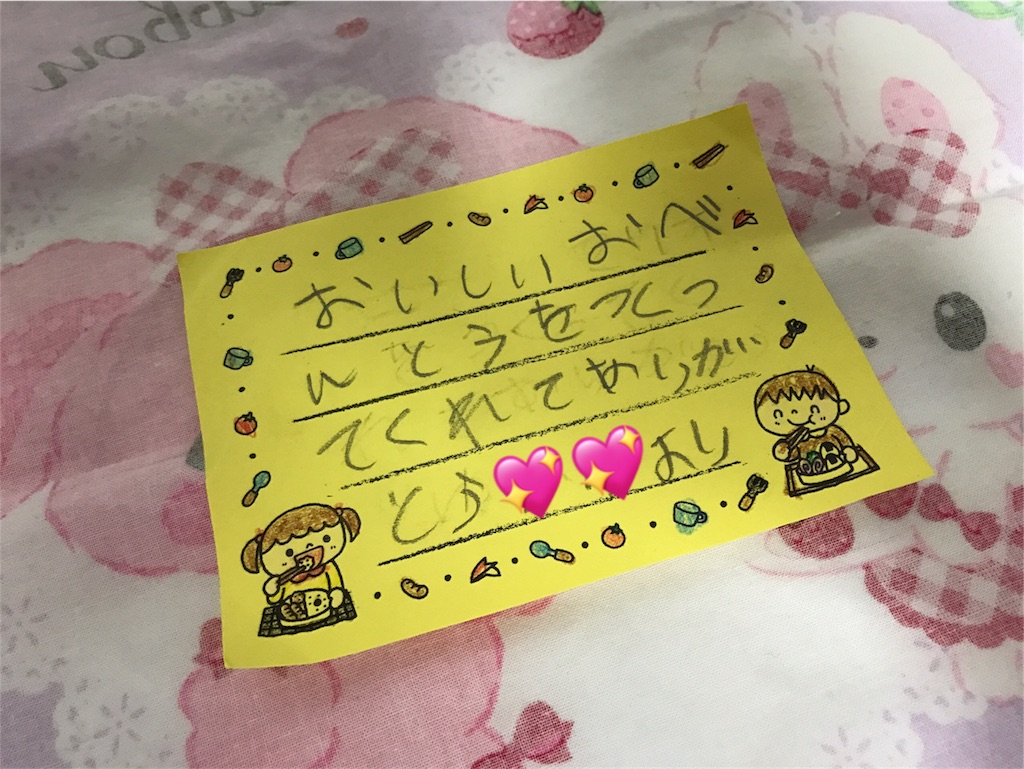 おいしいおべ
んとうをつくっ
てくれてありが
とう💖💖より